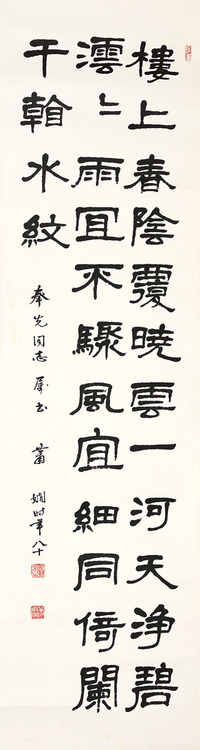 樓上春陰覆曉雲一河天淨碧
澐〻雨宜不驟風宜細同倚闌
干翰水紋
奉先同志屬书 萧
嫻时年八十